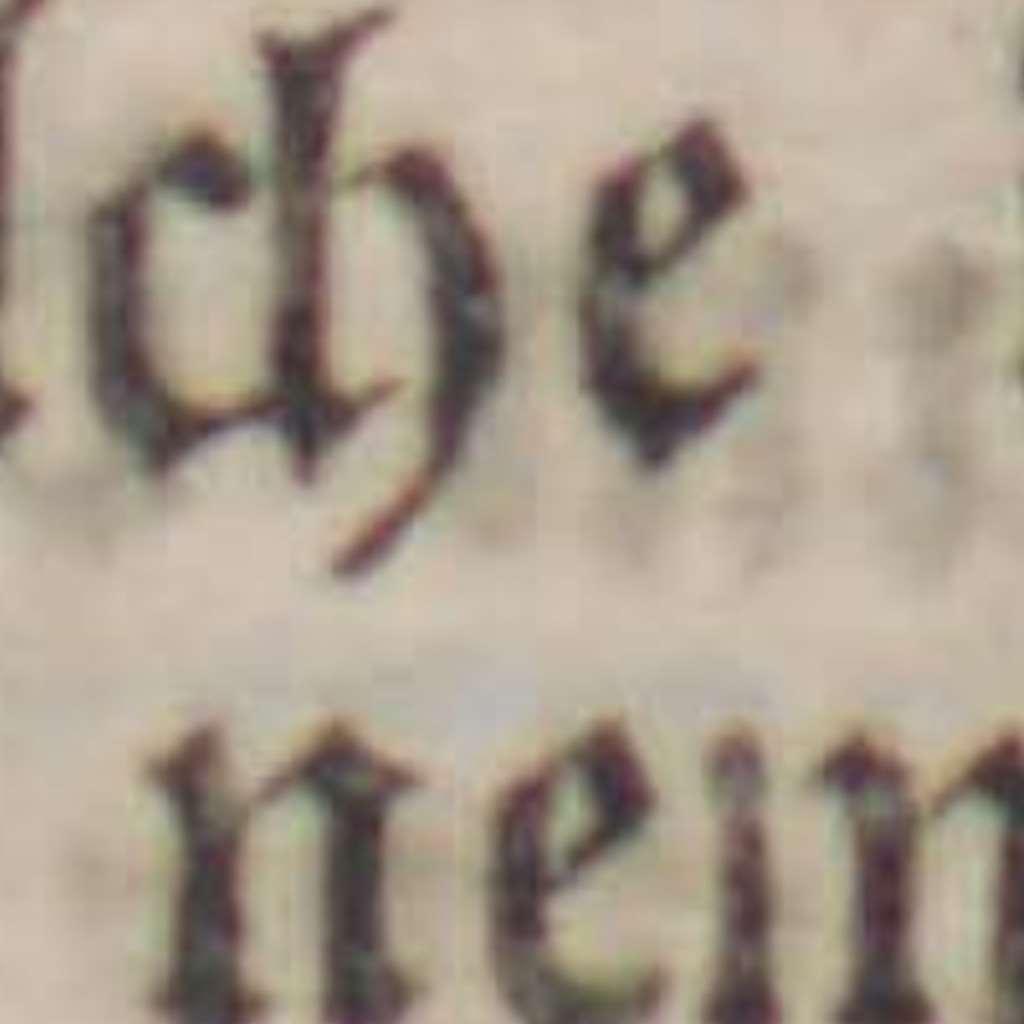 che
nein